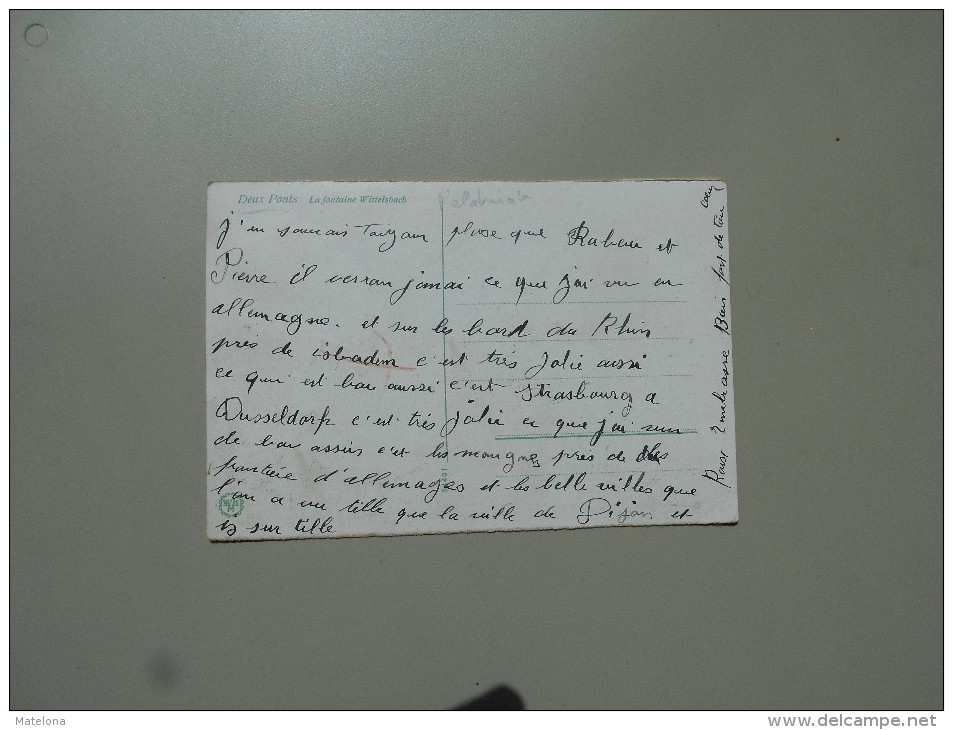 Deux Ponts La fontaine Wittelsbach
j'en tanzan plose que Raban et
Pierre il verran jamai ce que j'ai vu en
allemagne. et sur les bord du Rhin
près de isbadin c'est très Jolie aussi
ce qui est bau aussi c'est Strasbourg a
Dusseldorf c'est très jolie ce que j'ai vu
de bau assuis c'est les mongnes près de des
frantiere d'allemages et les belle villes que
l'on a vu tille que la ville de Dijon et
is sur tille
Bais fort de tou
Matelona
www.delcampe.net